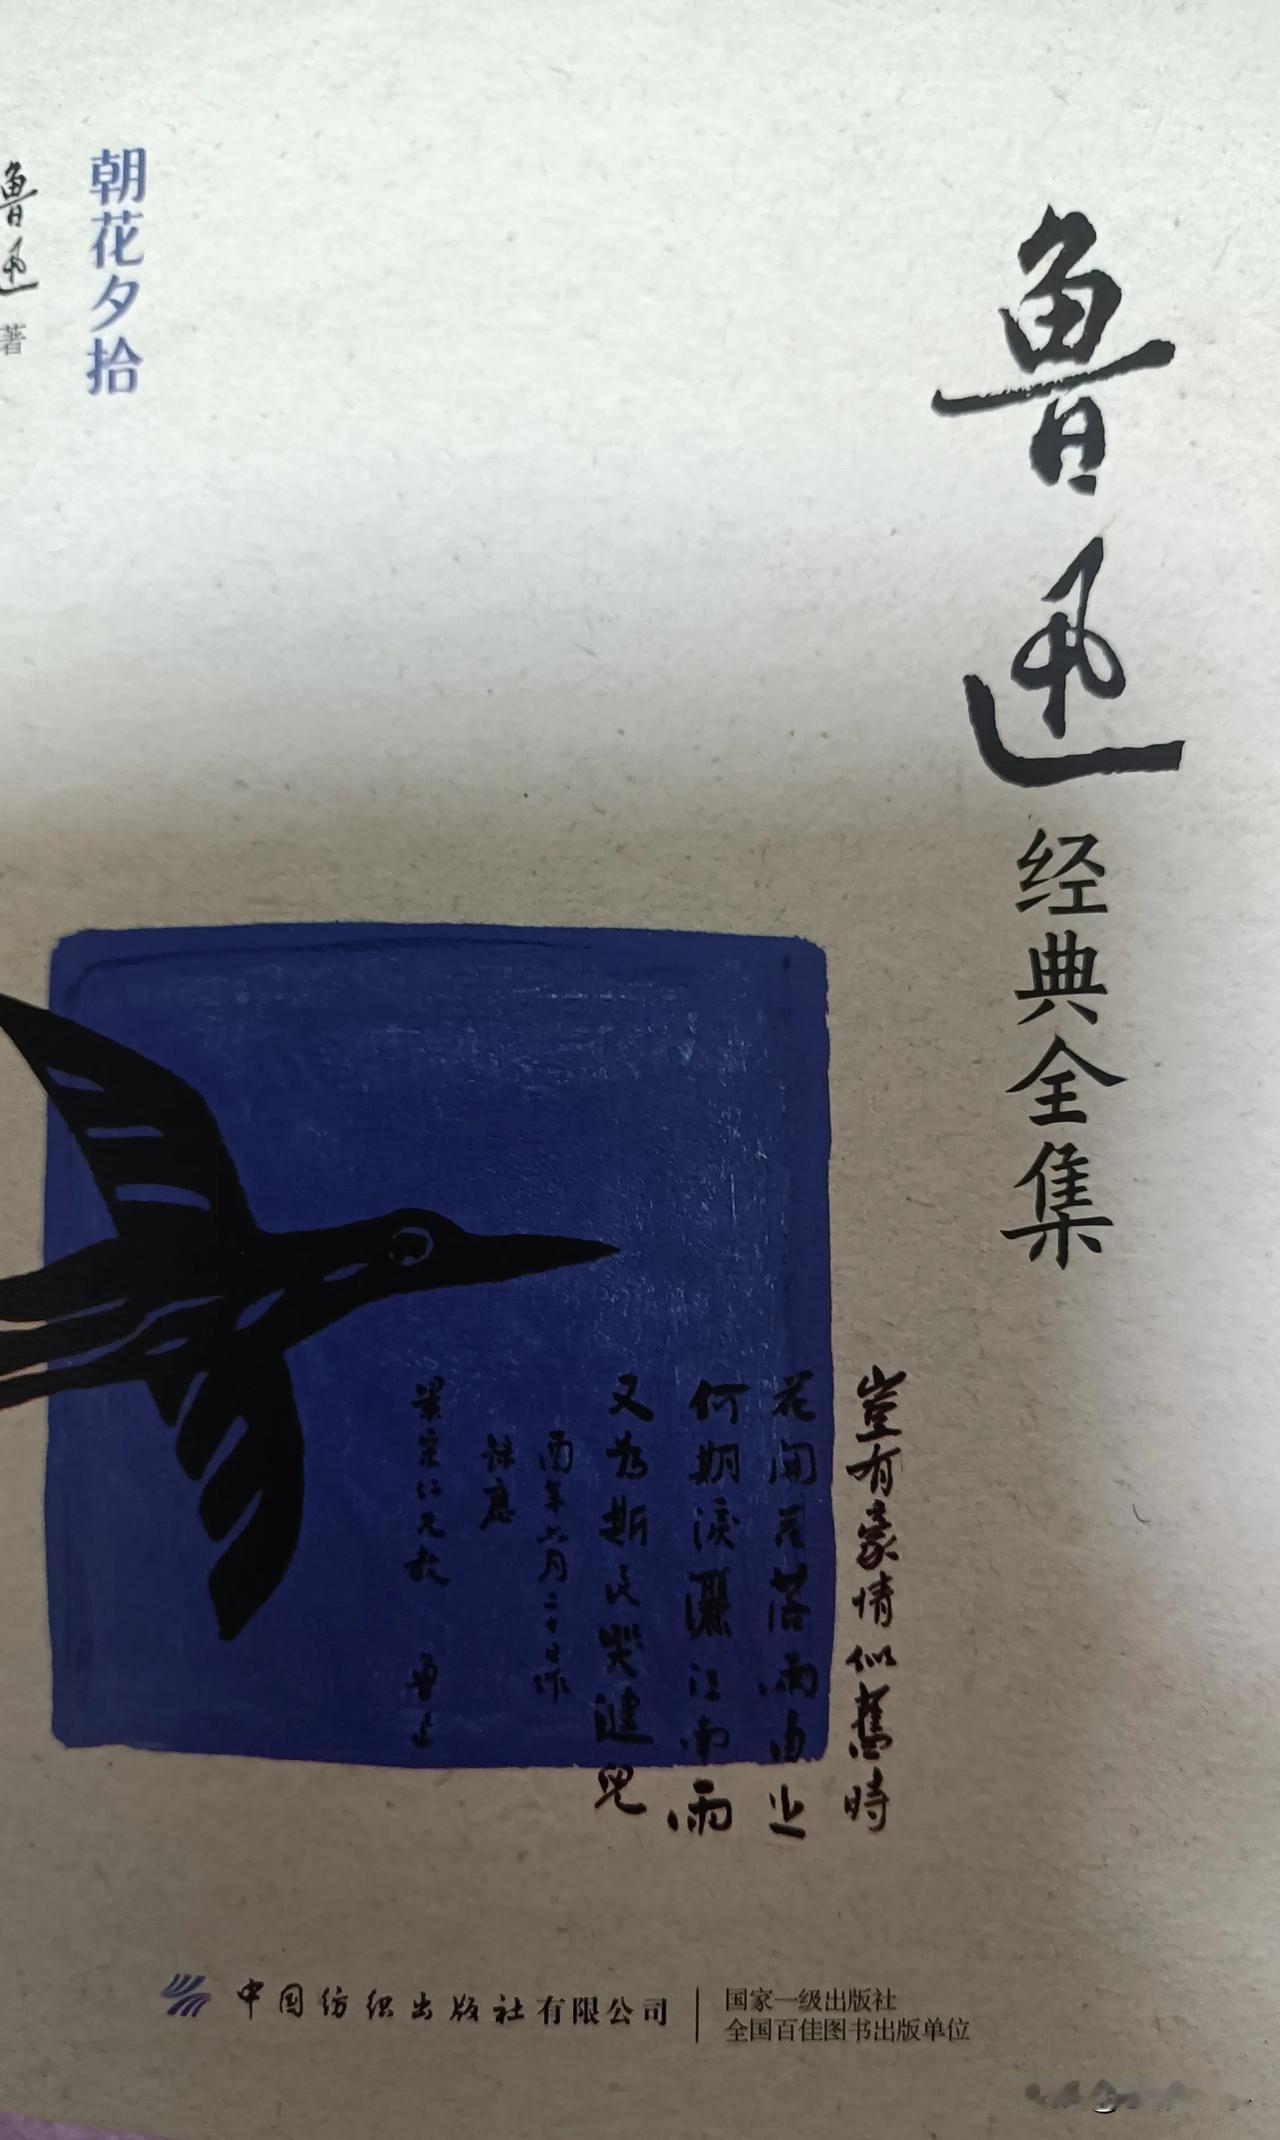 鲁迅
经典全集
朝花夕拾
鲁迅 著
豈有豪情似舊時
花開花落兩由之
何期淚灑江南雨
又為斯民哭健兒
酉年六月二十日作
錄應
景宋仁兄教 魯迅
中国纺织出版社有限公司
国家一级出版社
全国百佳图书出版单位